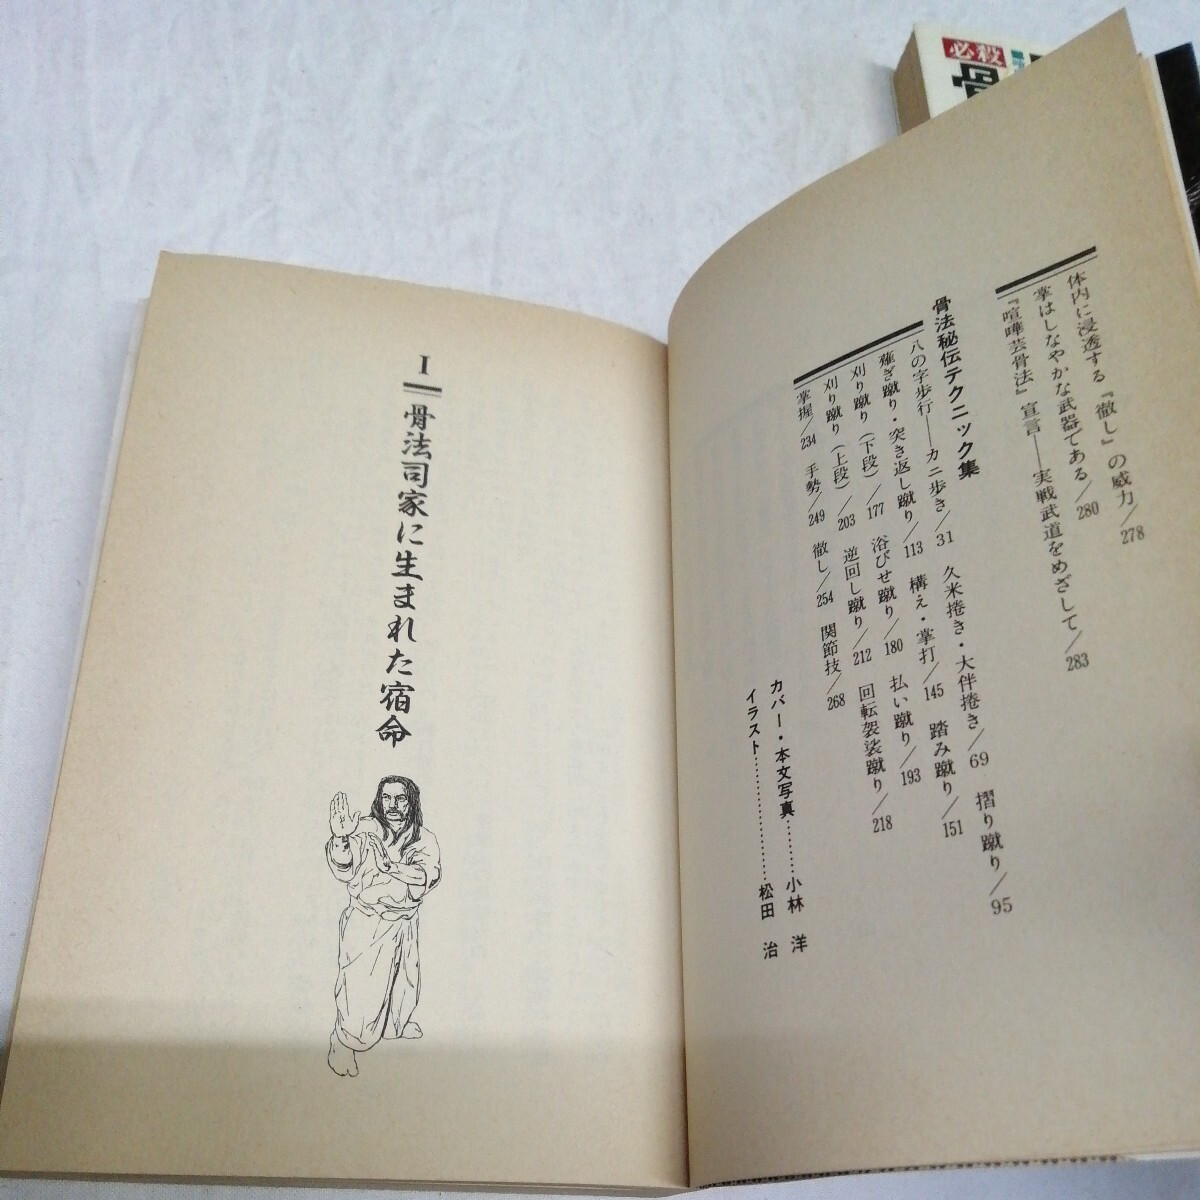 体内に浸透する『徹し』の威力/278
掌はしなやかな武器である/280
『喧嘩芸骨法』宣言――実戦武道をめざして/283
骨法秘伝テクニック集
八の字歩行――カニ歩き/31　久米捲き・大伴捲き/69　摺り蹴り/95
薙ぎ蹴り・突き返し蹴り/113　構え・掌打/145　踏み蹴り/151
刈り蹴り（下段）/177　浴びせ蹴り/180　払い蹴り/193
刈り蹴り（上段）/203　逆回し蹴り/212　回転袈裟蹴り/218
掌握/234　手勢/249　徹し/254　関節技/268
カバー・本文写真………小林　洋
イラスト………………松田　治
I
骨法司家に生まれた宿命
必殺
骨